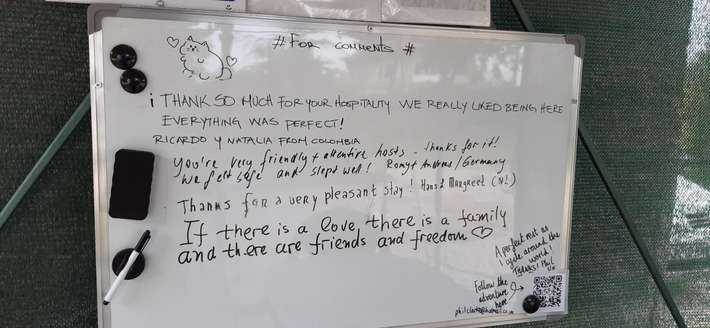 # FOR COMMENTS #
¡ THANK SO MUCH FOR YOUR HOSPITALITY WE REALLY LIKED BEING HERE
EVERYTHING WAS PERFECT!
RICARDO Y NATALIA FROM COLOMBIA
You're very friendly + attentive hosts - thanks for it!
We felt safe and slept well! Romy + Andreas / Germany
Thanks for a very pleasant stay! Hans & Margreet (NL)
If there is a love there is a family
and there are friends and freedom
A perfect rest as
I cycle around the
world!
THANKS! Phil
UK
Follow the
adventure
here